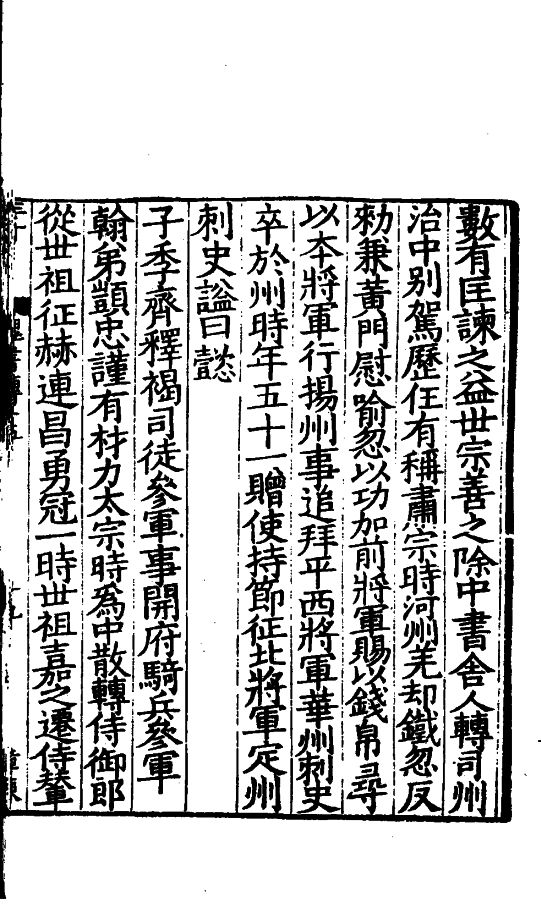 數有匡諫之益世宗善之除中書舍人轉司州
治中别駕歷任有稱肅宗時河州羌却鐵忽反
勑兼黄門慰喻忽以功加前將軍賜以錢帛尋
以本將軍行揚州事追拜平西將軍華州刺史
卒於州時年五十一贈使持節征北將軍定州
刺史謚曰懿
子季齊釋褐司徒參軍事開府騎兵參軍
翰弟顗忠謹有材力太宗時爲中散轉侍御郎
從世祖征赫連昌勇冠一時世祖嘉之遷侍輦